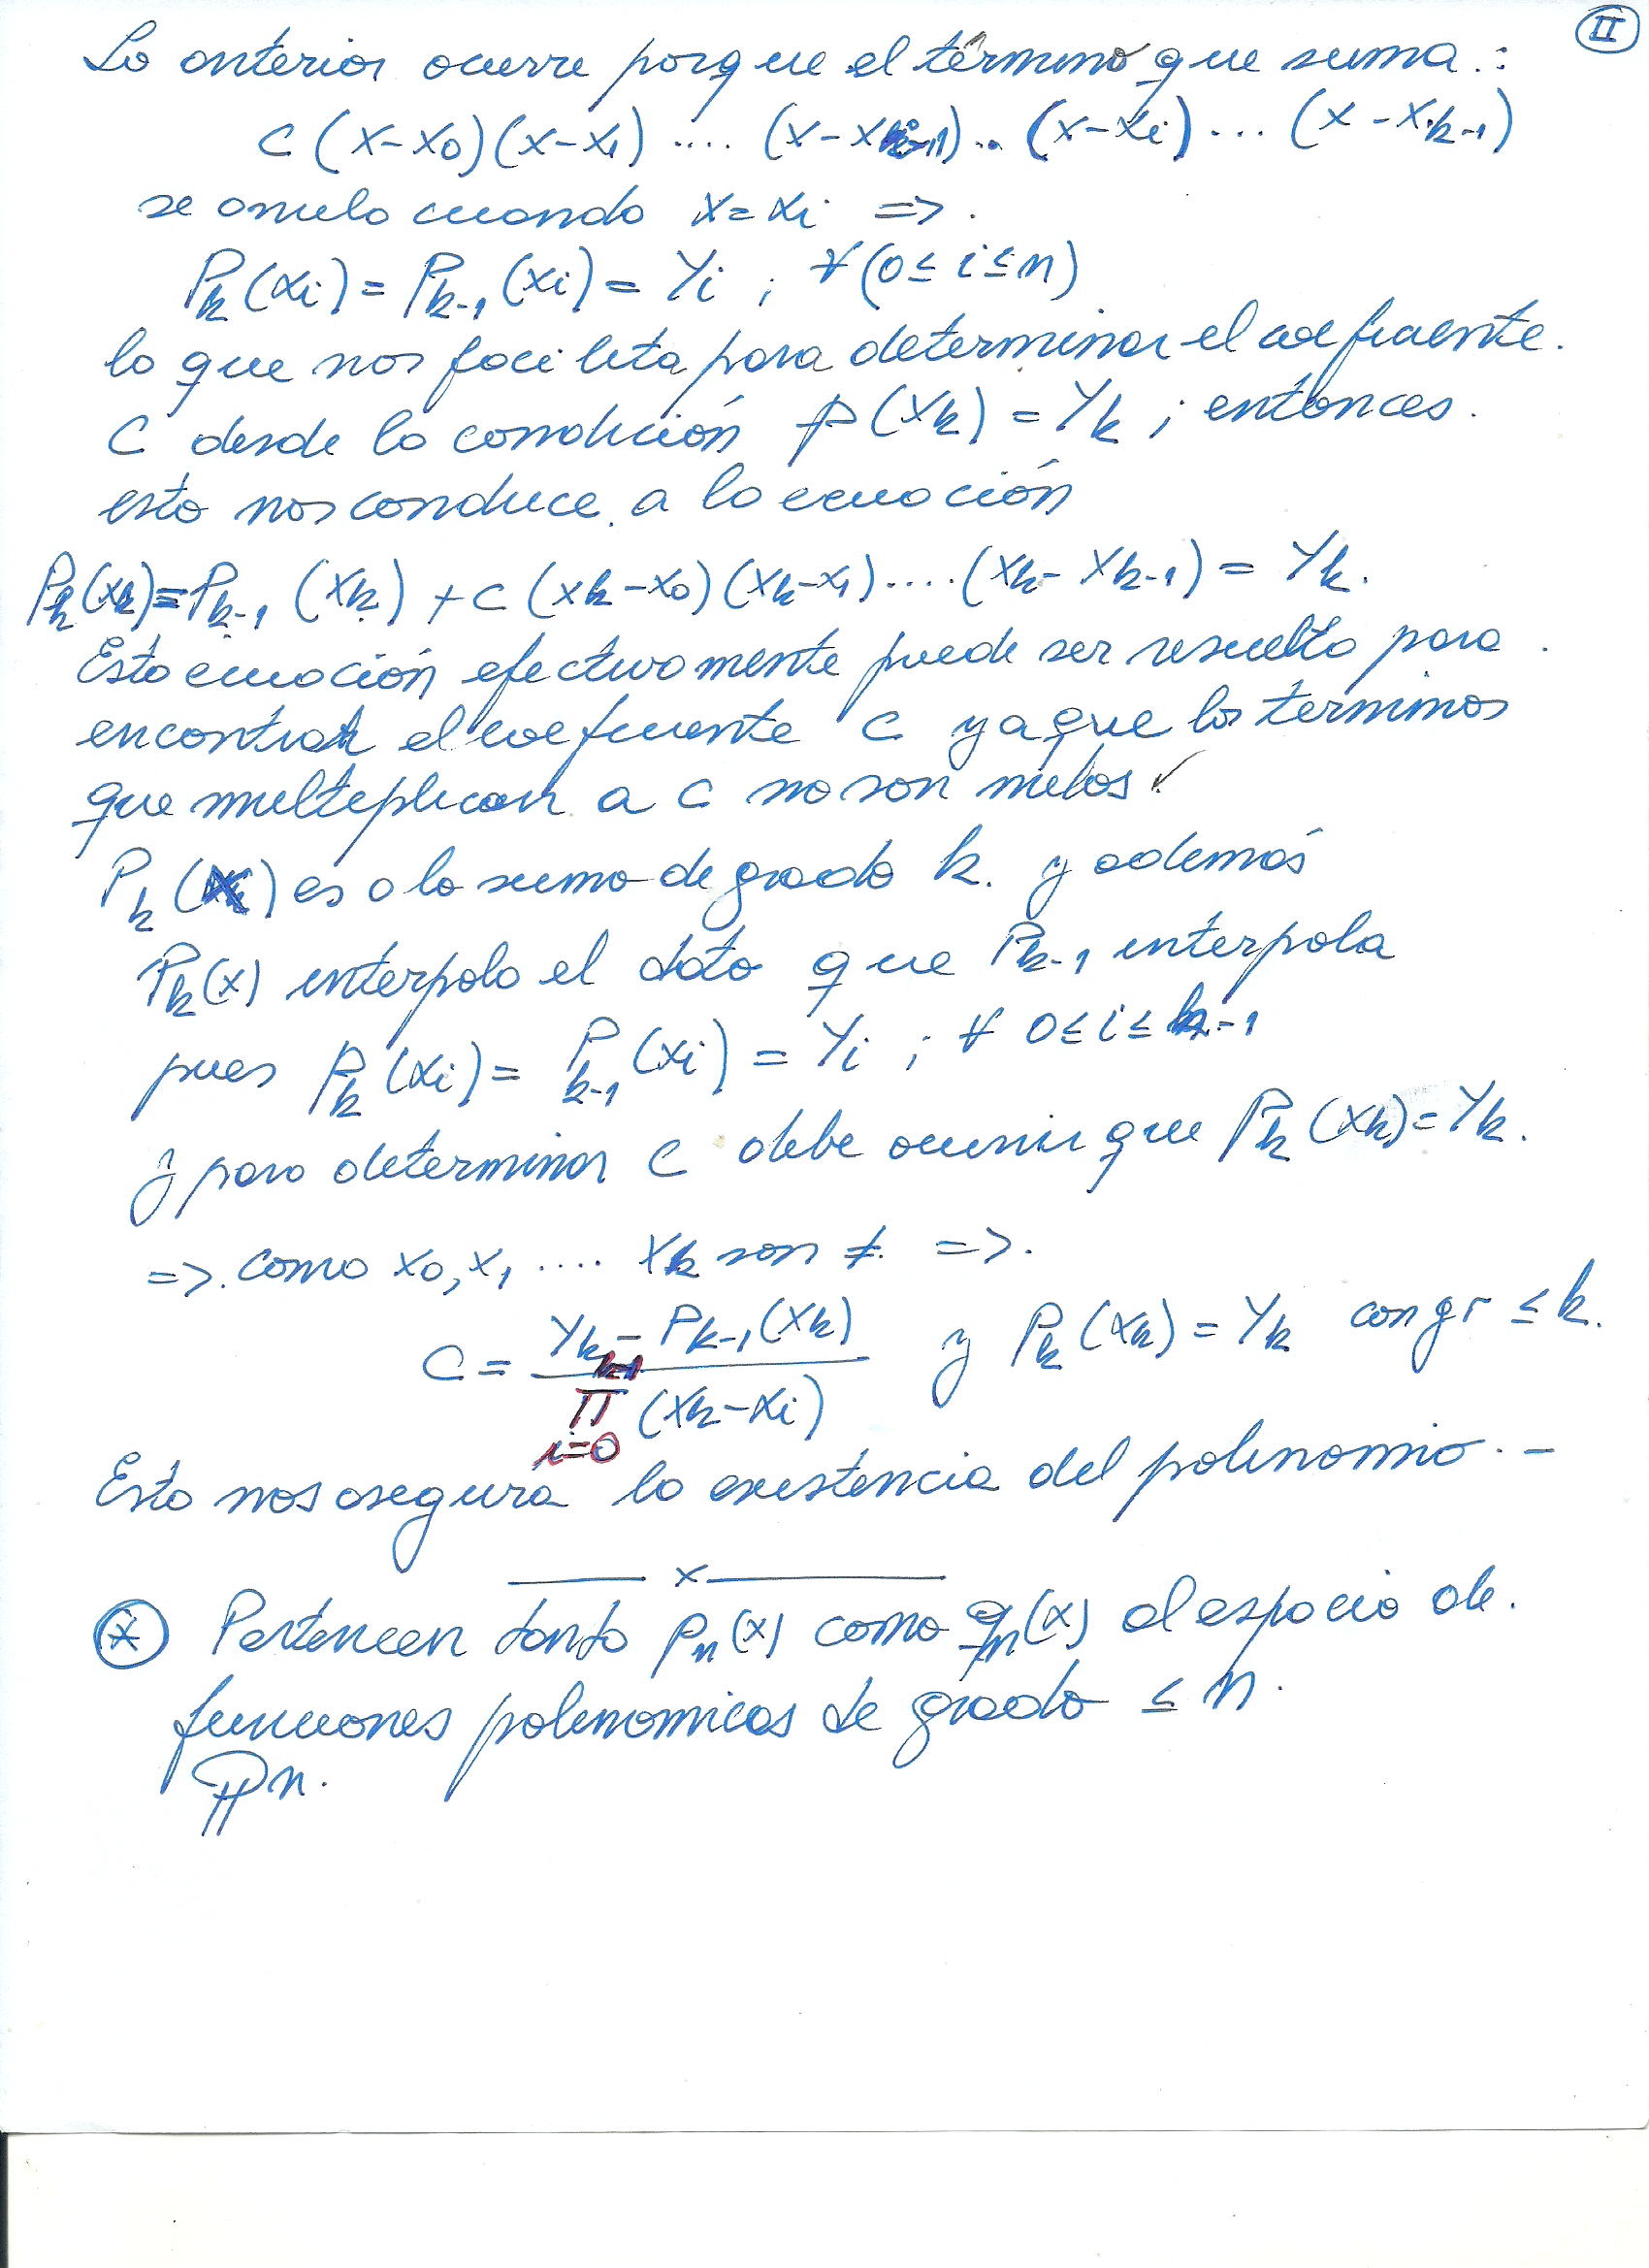 II
Lo anterior ocurre porque el término que suma:
C(x-x₀)(x-x₁)....(x-xᵢ₋₁)..(x-xᵢ)...(x-xₖ₋₁)
se anula cuando x=xᵢ =>.
Pₖ(xᵢ) = Pₖ₋₁(xᵢ) = Yᵢ ; ∀(0≤i≤n)
lo que nos facilita para determinar el coeficiente.
C desde la condición p(xₖ) = Yₖ ; entonces.
esto nos conduce a la ecuación
Pₖ(xₖ)=Pₖ₋₁(xₖ) + C(xₖ-x₀)(xₖ-x₁)....(xₖ-xₖ₋₁) = Yₖ.
Esta ecuación efectivamente puede ser resuelta para.
encontrar el coeficiente C ya que los terminos
que multiplican a C no son nulos.
Pₖ(x) es a lo sumo de grado k. y además
Pₖ(x) interpola el dato que Pₖ₋₁ interpola
pues Pₖ(xᵢ) = Pₖ₋₁(xᵢ) = Yᵢ ; ∀ 0≤i≤k-1
y para determinar C debe ocurrir que Pₖ(xₖ)=Yₖ.
=>. como x₀,x₁.... xₖ son ≠. =>.
C = (Yₖ - Pₖ₋₁(xₖ)) / ∏ᵢ₌₀ᵏ⁻¹ (xₖ-xᵢ) y Pₖ(xₖ) = Yₖ con gr ≤ k.
Esto nos asegura la existencia del polinomio.-
——x——
(*) Pertenecen tanto pₙ(x) como qₙ(x) al espacio de.
funciones polinomicas de grado ≤ n.
ℙn.